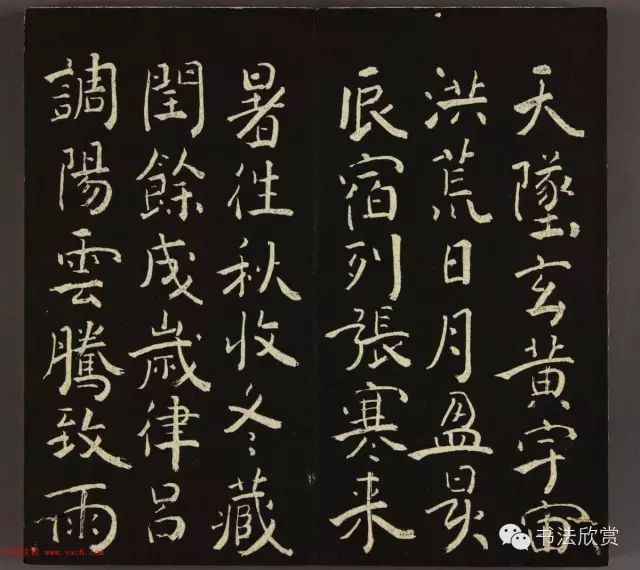 天墬玄黄宇宙
洪荒日月盈昃
辰宿列張寒来
暑往秋收冬藏
閏餘成歲律呂
調陽雲騰致雨
书法欣赏
书法欣赏 www.yac8.com